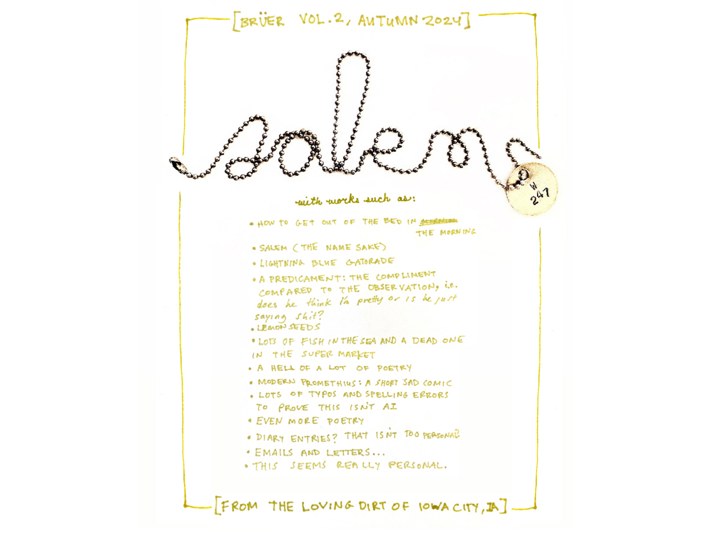 [BRÜER VOL.2, AUTUMN 2024]
salem
W
247
with works such as:
• HOW TO GET OUT OF THE BED IN
THE MORNING
• SALEM (THE NAME SAKE)
• LIGHTNING BLUE GATORADE
• A PREDICAMENT: THE COMPLIMENT
COMPARED TO THE OBSERVATION, i.e.
does he think I'm pretty or is he just
saying shit?
• LEMON SEEDS
• LOTS OF FISH IN THE SEA AND A DEAD ONE
IN THE SUPER MARKET
• A HELL OF A LOT OF POETRY
• MODERN PROMETHIUS: A SHORT SAD COMIC
• LOTS OF TYPOS AND SPELLING ERRORS
TO PROVE THIS ISN'T AI
• EVEN MORE POETRY
• DIARY ENTRIES? THAT ISN'T TOO PERSONAL
• EMAILS AND LETTERS...
• THIS SEEMS REALLY PERSONAL.
[FROM THE LOVING DIRT OF IOWA CITY, IA]